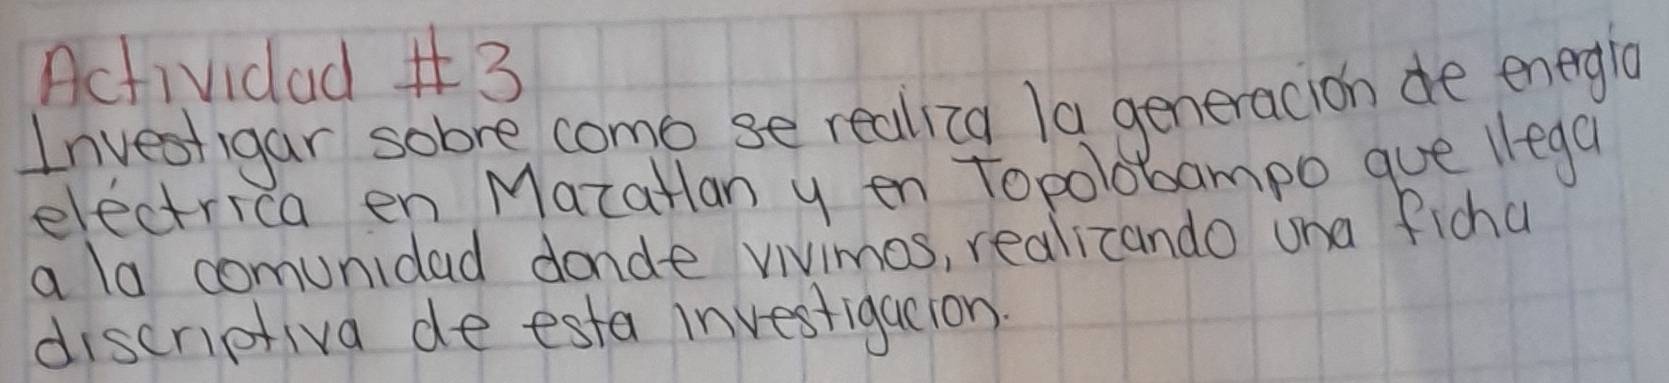 Actividad #3
Investigar sobre como se realiza la generación de energia
eléctrica en Mazatlan y en Topolobampo que llega
a la comunidad donde vivimos, realizando una ficha
discriptiva de esta investigacion.